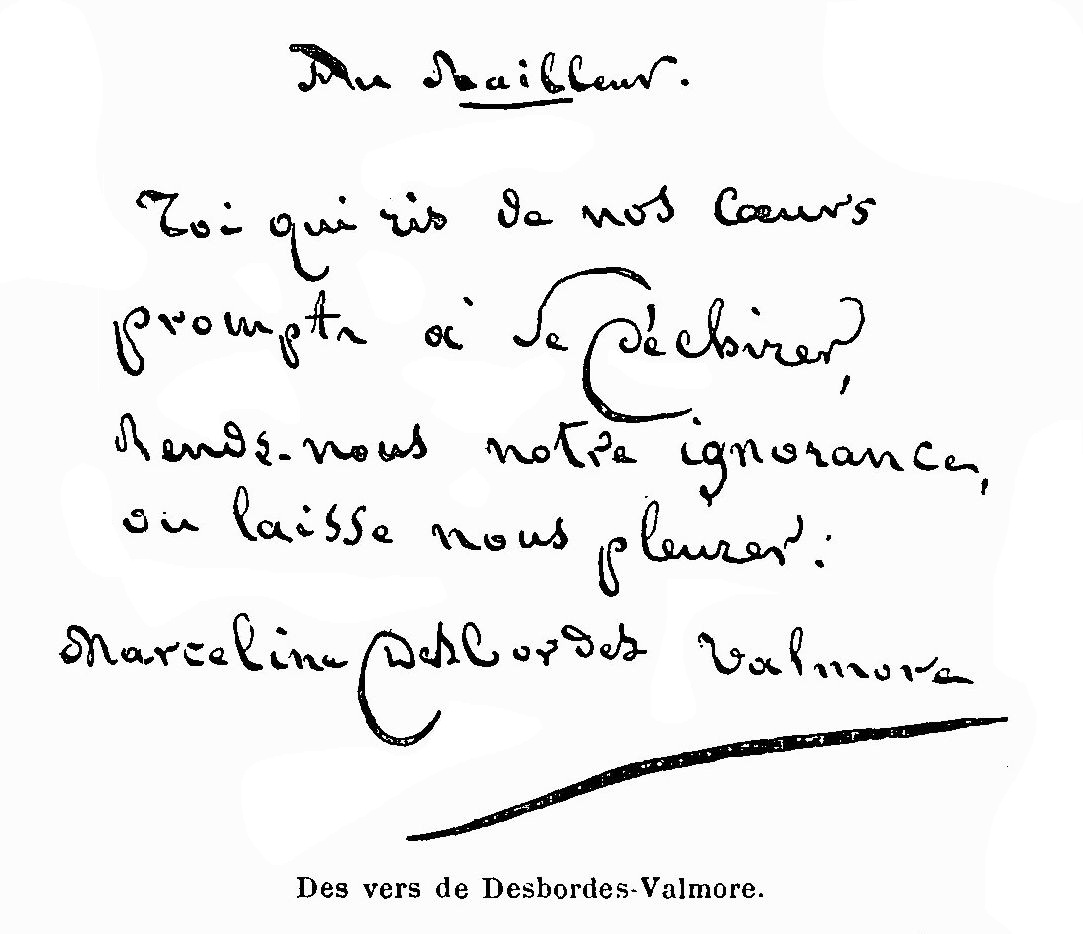 Au Railleur.
Toi qui ris de nos cœurs
prompts à se déchirer,
Rends-nous notre ignorance,
ou laisse nous pleurer :
Marceline Desbordes Valmore
Des vers de Desbordes-Valmore.